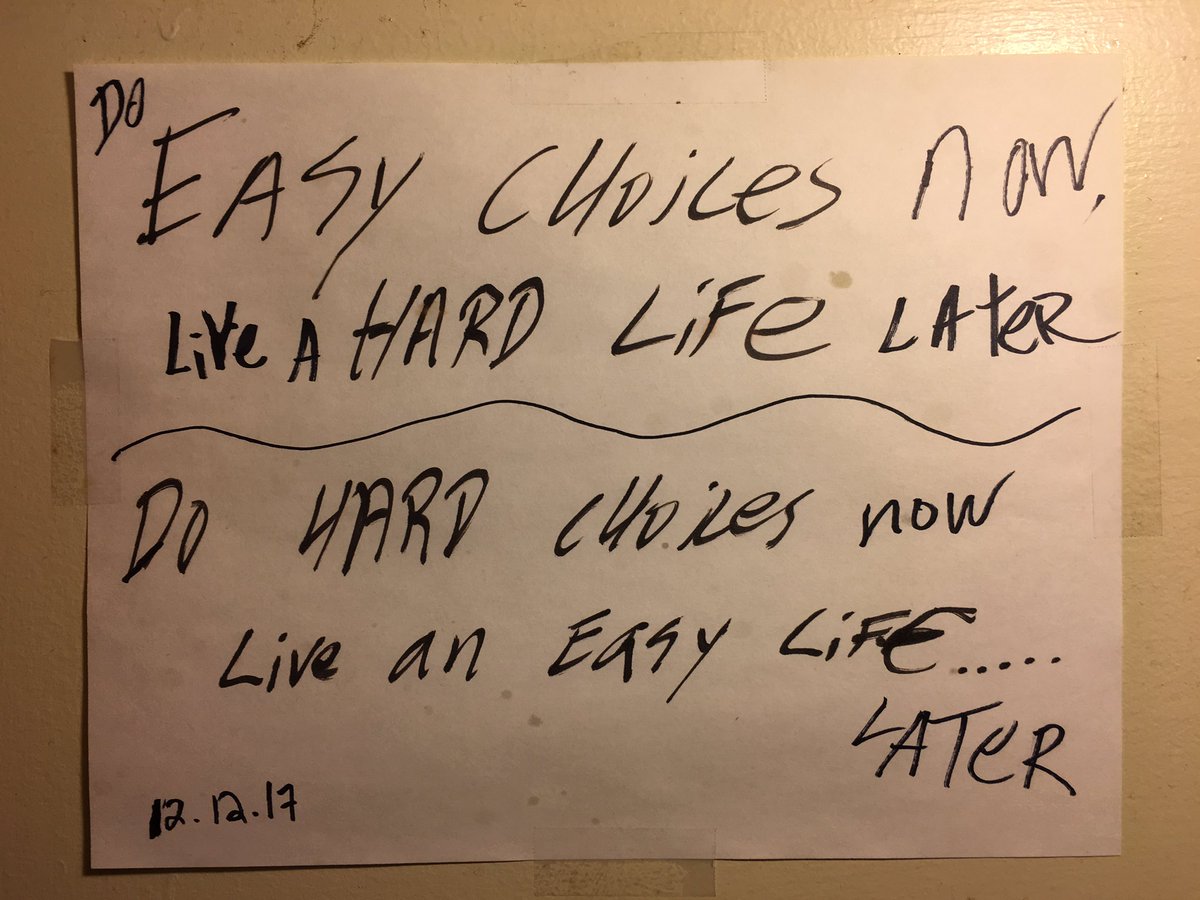 DO
EASy CHOiCES nOW,
LiVe A HARD LiFe LATeR
DO HARD CHOiCes now
Live an EASy LiFE.....
LATeR
12.12.17